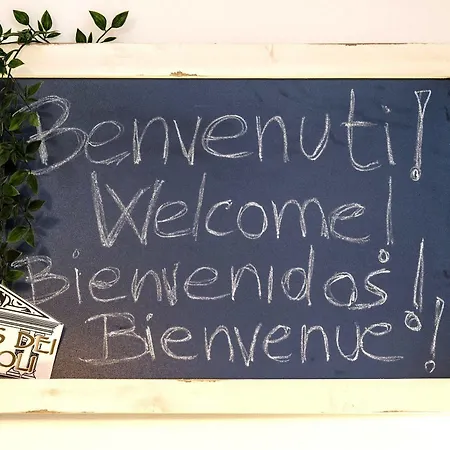 Benvenuti!
Welcome!
Bienvenidos!
Bienvenue!
S DEI
OLI